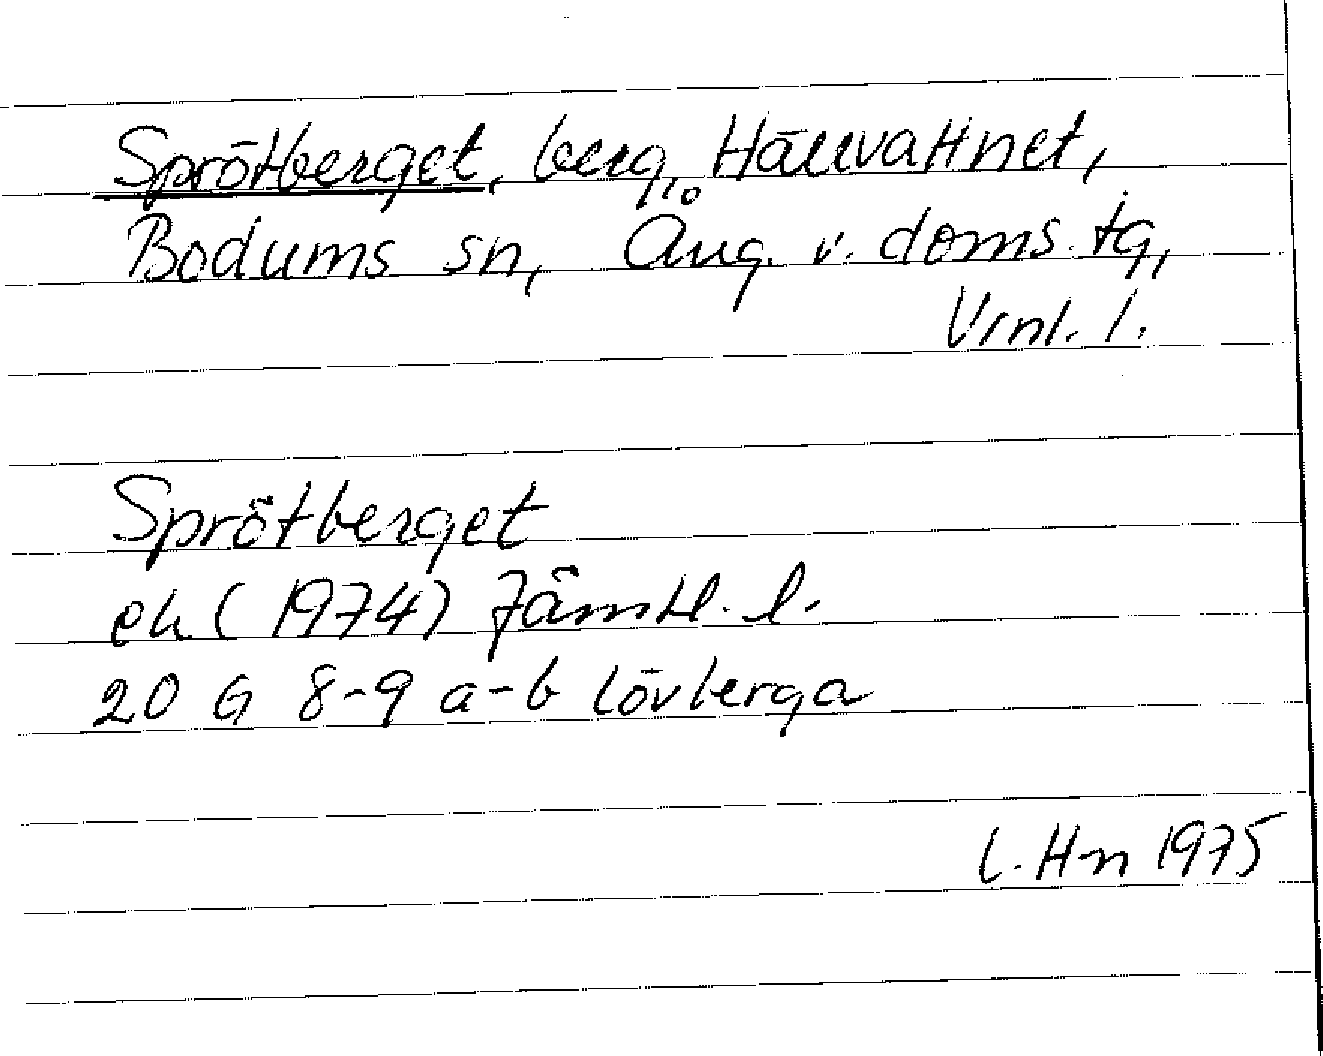 Sprötberget, berg, Hällvattnet,
Bodums sn, Ång. v. doms. tg,
Vrnl. l.
Sprötberget
ek (1974) Jämtl. l.
20 G 8-9 a-b Lövberga
L. Hn 1975